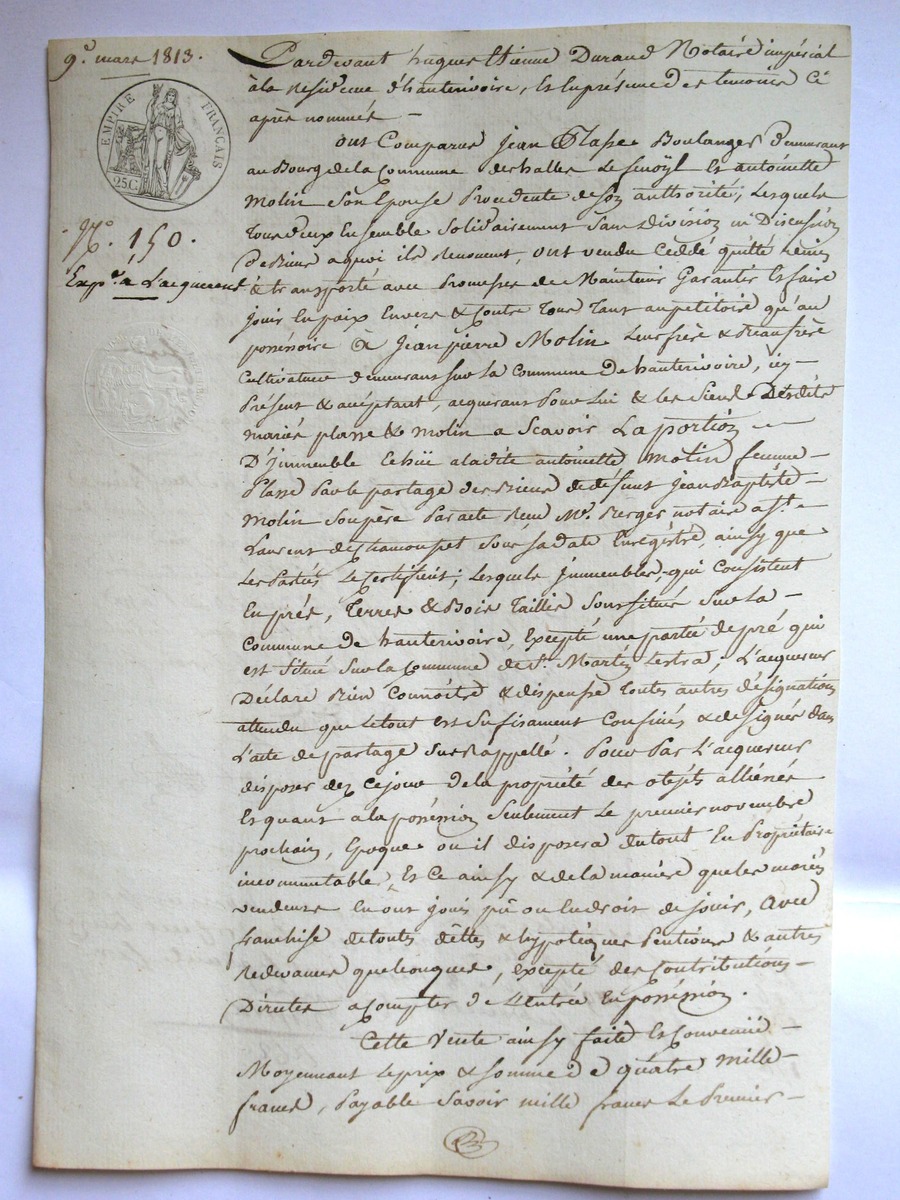 9.e mars 1813.
EMPIRE FRANÇAIS
25 C.
N.o 150.
Exp.n a L'acquereur
Pardevant hugues Etienne Durand Notaire impérial
à la Residence d'hauterivoire, Et En présence des temoins Ci
après nommés —
ont Comparus Jean Plasse Boulanger demeurant
au Bourg de la Commune des halles Le fenoÿl Et antoinette
Molin Son Epouse Procedente de Son authorité, Lesquels
tous deux Ensemble Solidairement Sans division ni Discussion
de Biens a quoi ils Renoncent, ont vendu Ceddé quitté Remis
& transporté avec Promesse de Maintenir Garantir Et faire
Jouir En paix Envers & Contre tous tant au petitoire qu'au
posséssoire à Jean pierre Molin Leur frère & Beaufrère
Cultivateur demeurant sur La Commune De hauterivoire, icy —
Présent & acceptant, acquerant Pour Lui & les Siens Desdits
mariés plasse & Molin a Scavoir La portion —
D'immeuble Echüe a ladite antoinette Molin femme —
Plasse Par le partage des Biens de défunt Jean Baptiste —
Molin Son père Par acte Reçu M.e Berger notaire a S.t —
Laurent de Chamousset Sous Sa date Enrégistré, ainsy que
Les Parties Le Certifient; Lesquels immeubles qui Consistent
En prés, Terres & Bois Taillis Sont Situés Sur La —
Commune De hauterivoire, Excepté une partie de pré qui
est Situé Sur La Commune de S.t Martin Lestra; L'acquereur
Déclare Bien Connoître & dispense toutes autres désignations
attendu que Le tout est Sufisament Confinés & designés dans
L'acte de partage Sus Rappellé. Pour Par L'acquereur
disposer dez ce jour de la propriété des objets alliénés
Et quant à la posséssion Seulement Le premier novembre
prochain, Epoque ou il disposera du tout En Propriétaire
incommutable, Et Ce ainsy & de la manière que les mariés
vendeurs En ont joui pû ou En droit de Jouir, avec
franchise de toutes dêttes & hypotéques Pentions & autres
Redevances quelconques, excepté des Contributions —
Directes a Compter de L'entrée En posséssion.
Cette Vente ainsy faite Et Convenüe —
Moyennant Le prix & Somme de quatre mille —
francs, Payable Savoir mille francs Le Premier —